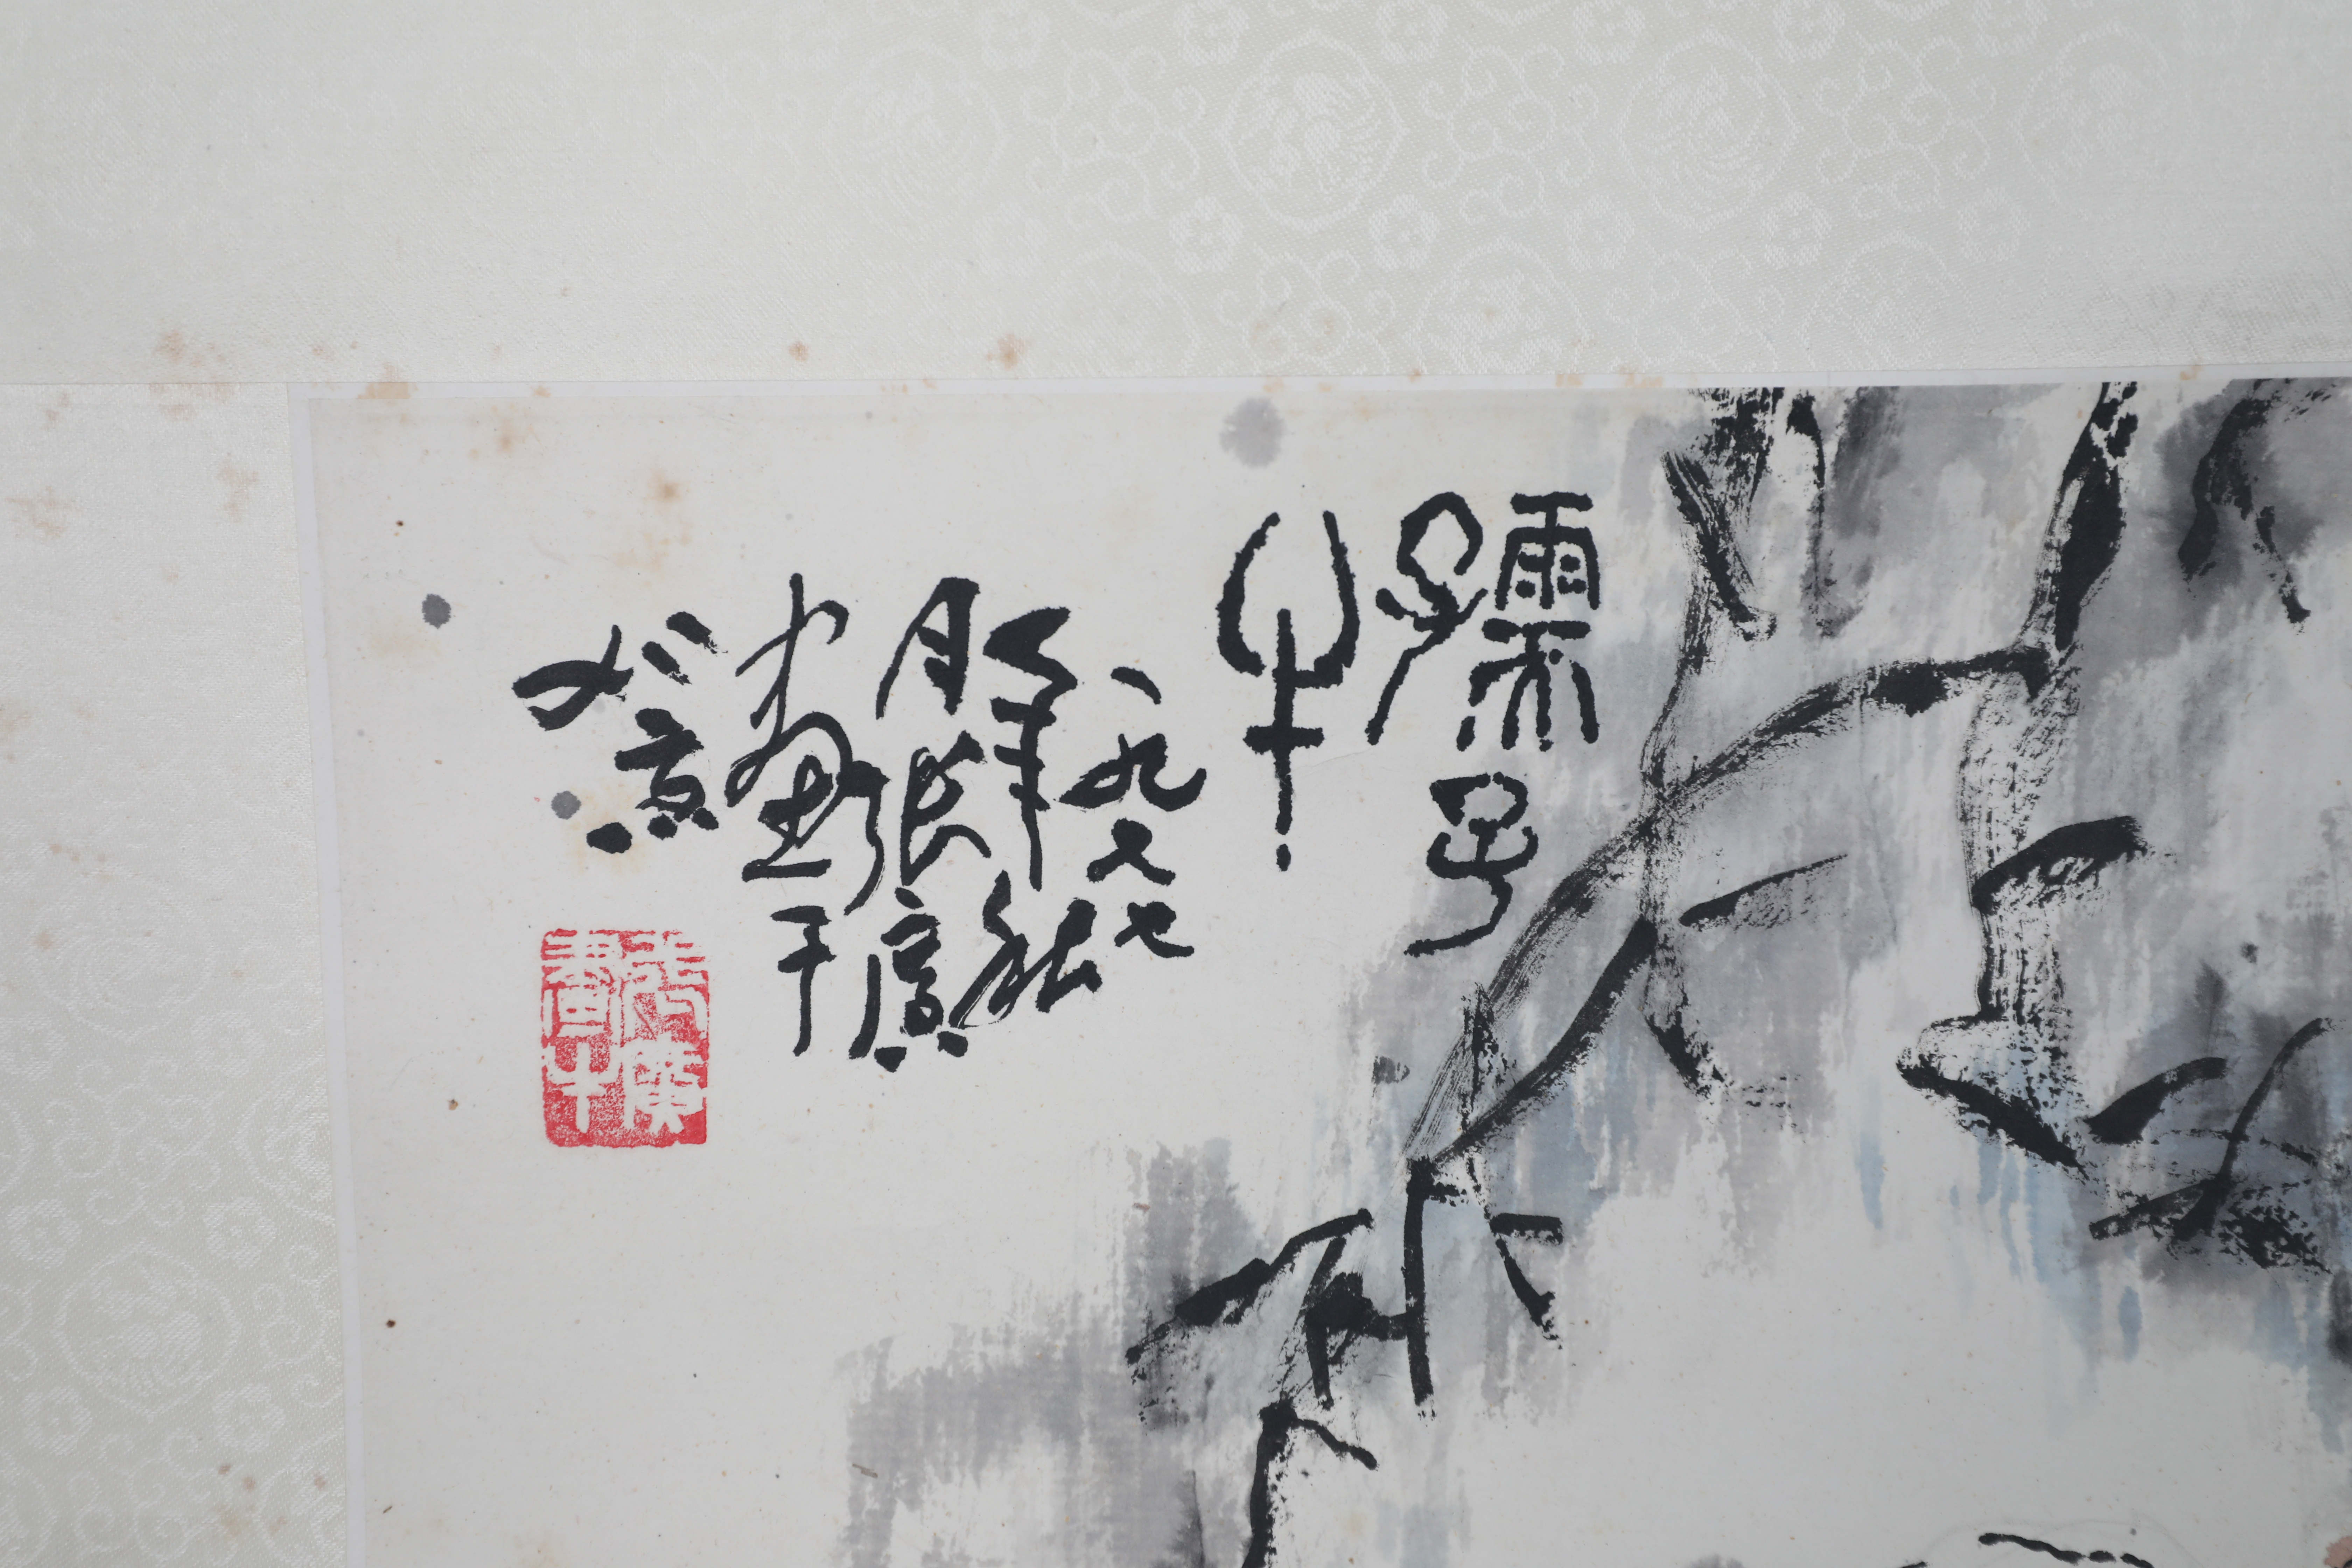 孺子
牛
一九七七
年秋
月張廣
畫于
北京
張廣
畫牛